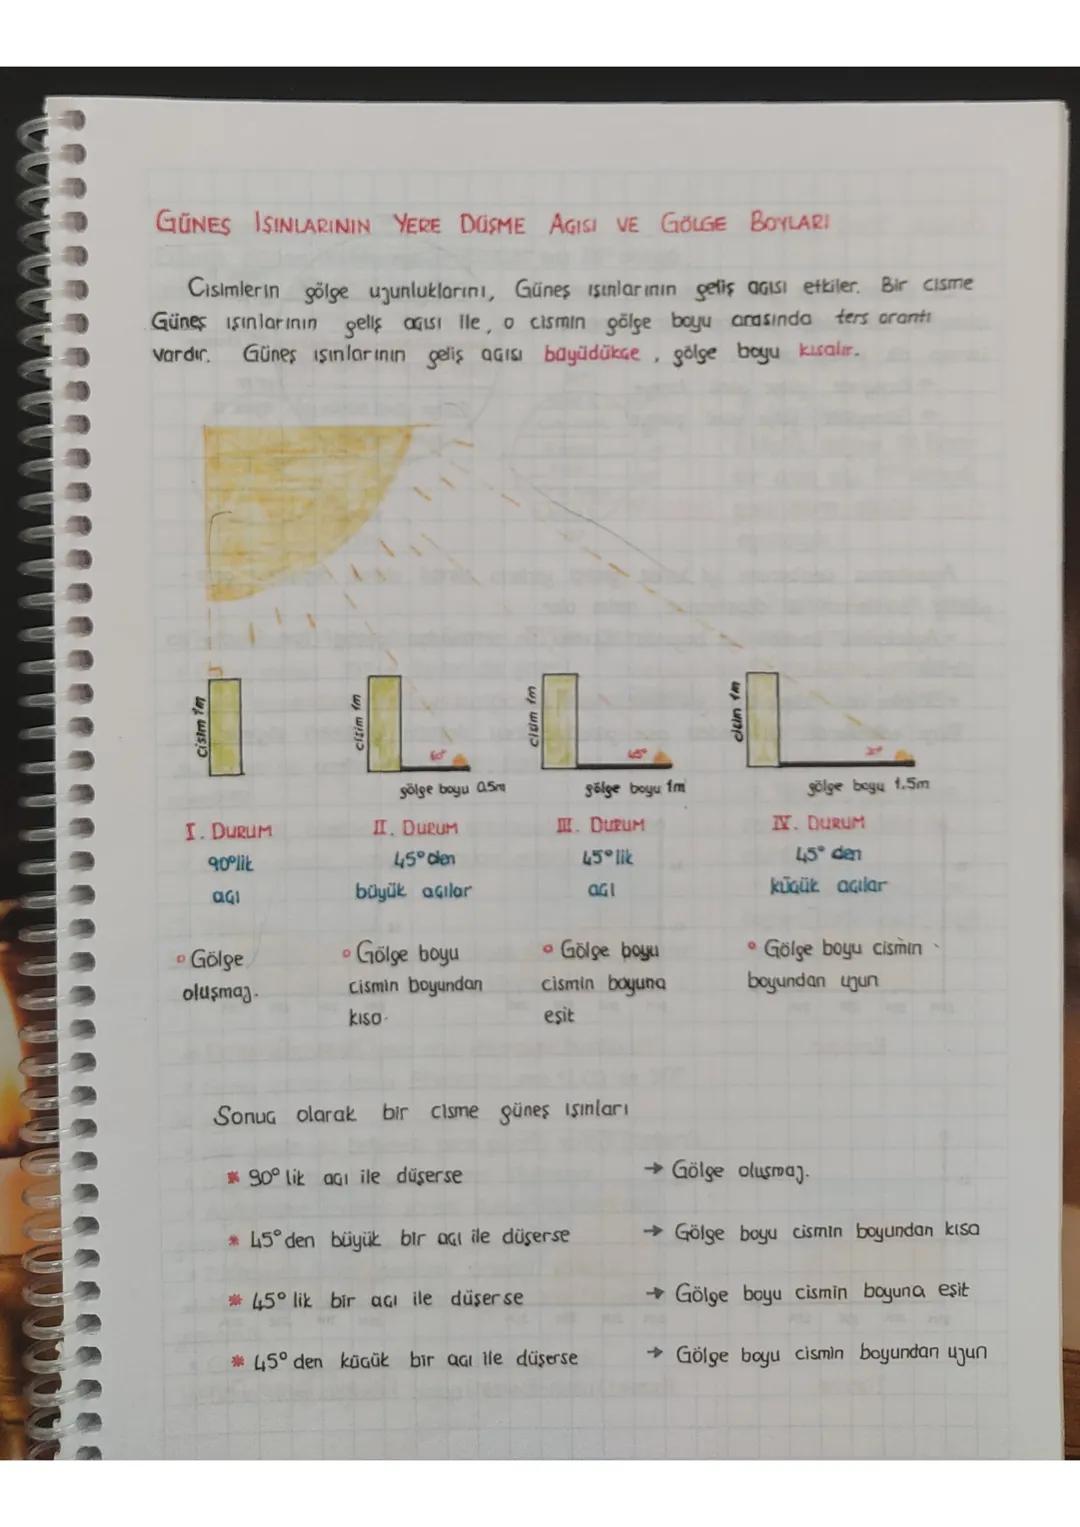 GÜNEŞ IŞINLARININ YERE DÜŞME AÇISI VE GÖLGE BOYLARI
Cisimlerin gölge uzunluklarını, Güneş ışınlarının geliş açısı etkiler. Bir cisme
Güneş ışınlarının geliş açısı ile, o cismin gölge boyu arasında ters orantı
vardır. Güneş ışınlarının geliş açısı büyüdükçe, gölge boyu kısalır.
cisim 1m
cisim 1m
cisim 1m
cisim 1m
60°
45°
gölge boyu 0.5m
gölge boyu 1m
gölge boyu 1.5m
I. DURUM
II. DURUM
III. DURUM
IV. DURUM
90°lik
45°den
45°lik
45° den
açı
büyük açılar
açı
küçük açılar
Gölge
oluşmaz.
Gölge boyu
cismin boyundan
kısa.
Gölge boyu
cismin boyuna
eşit
Gölge boyu cismin
boyundan uzun
Sonuç olarak bir cisme güneş ışınları
* 90° lik açı ile düşerse → Gölge oluşmaz.
* 45°den büyük bir açı ile düşerse → Gölge boyu cismin boyundan kısa
* 45° lik bir açı ile düşerse → Gölge boyu cismin boyuna eşit
* 45° den küçük bir açı ile düşerse → Gölge boyu cismin boyundan uzun